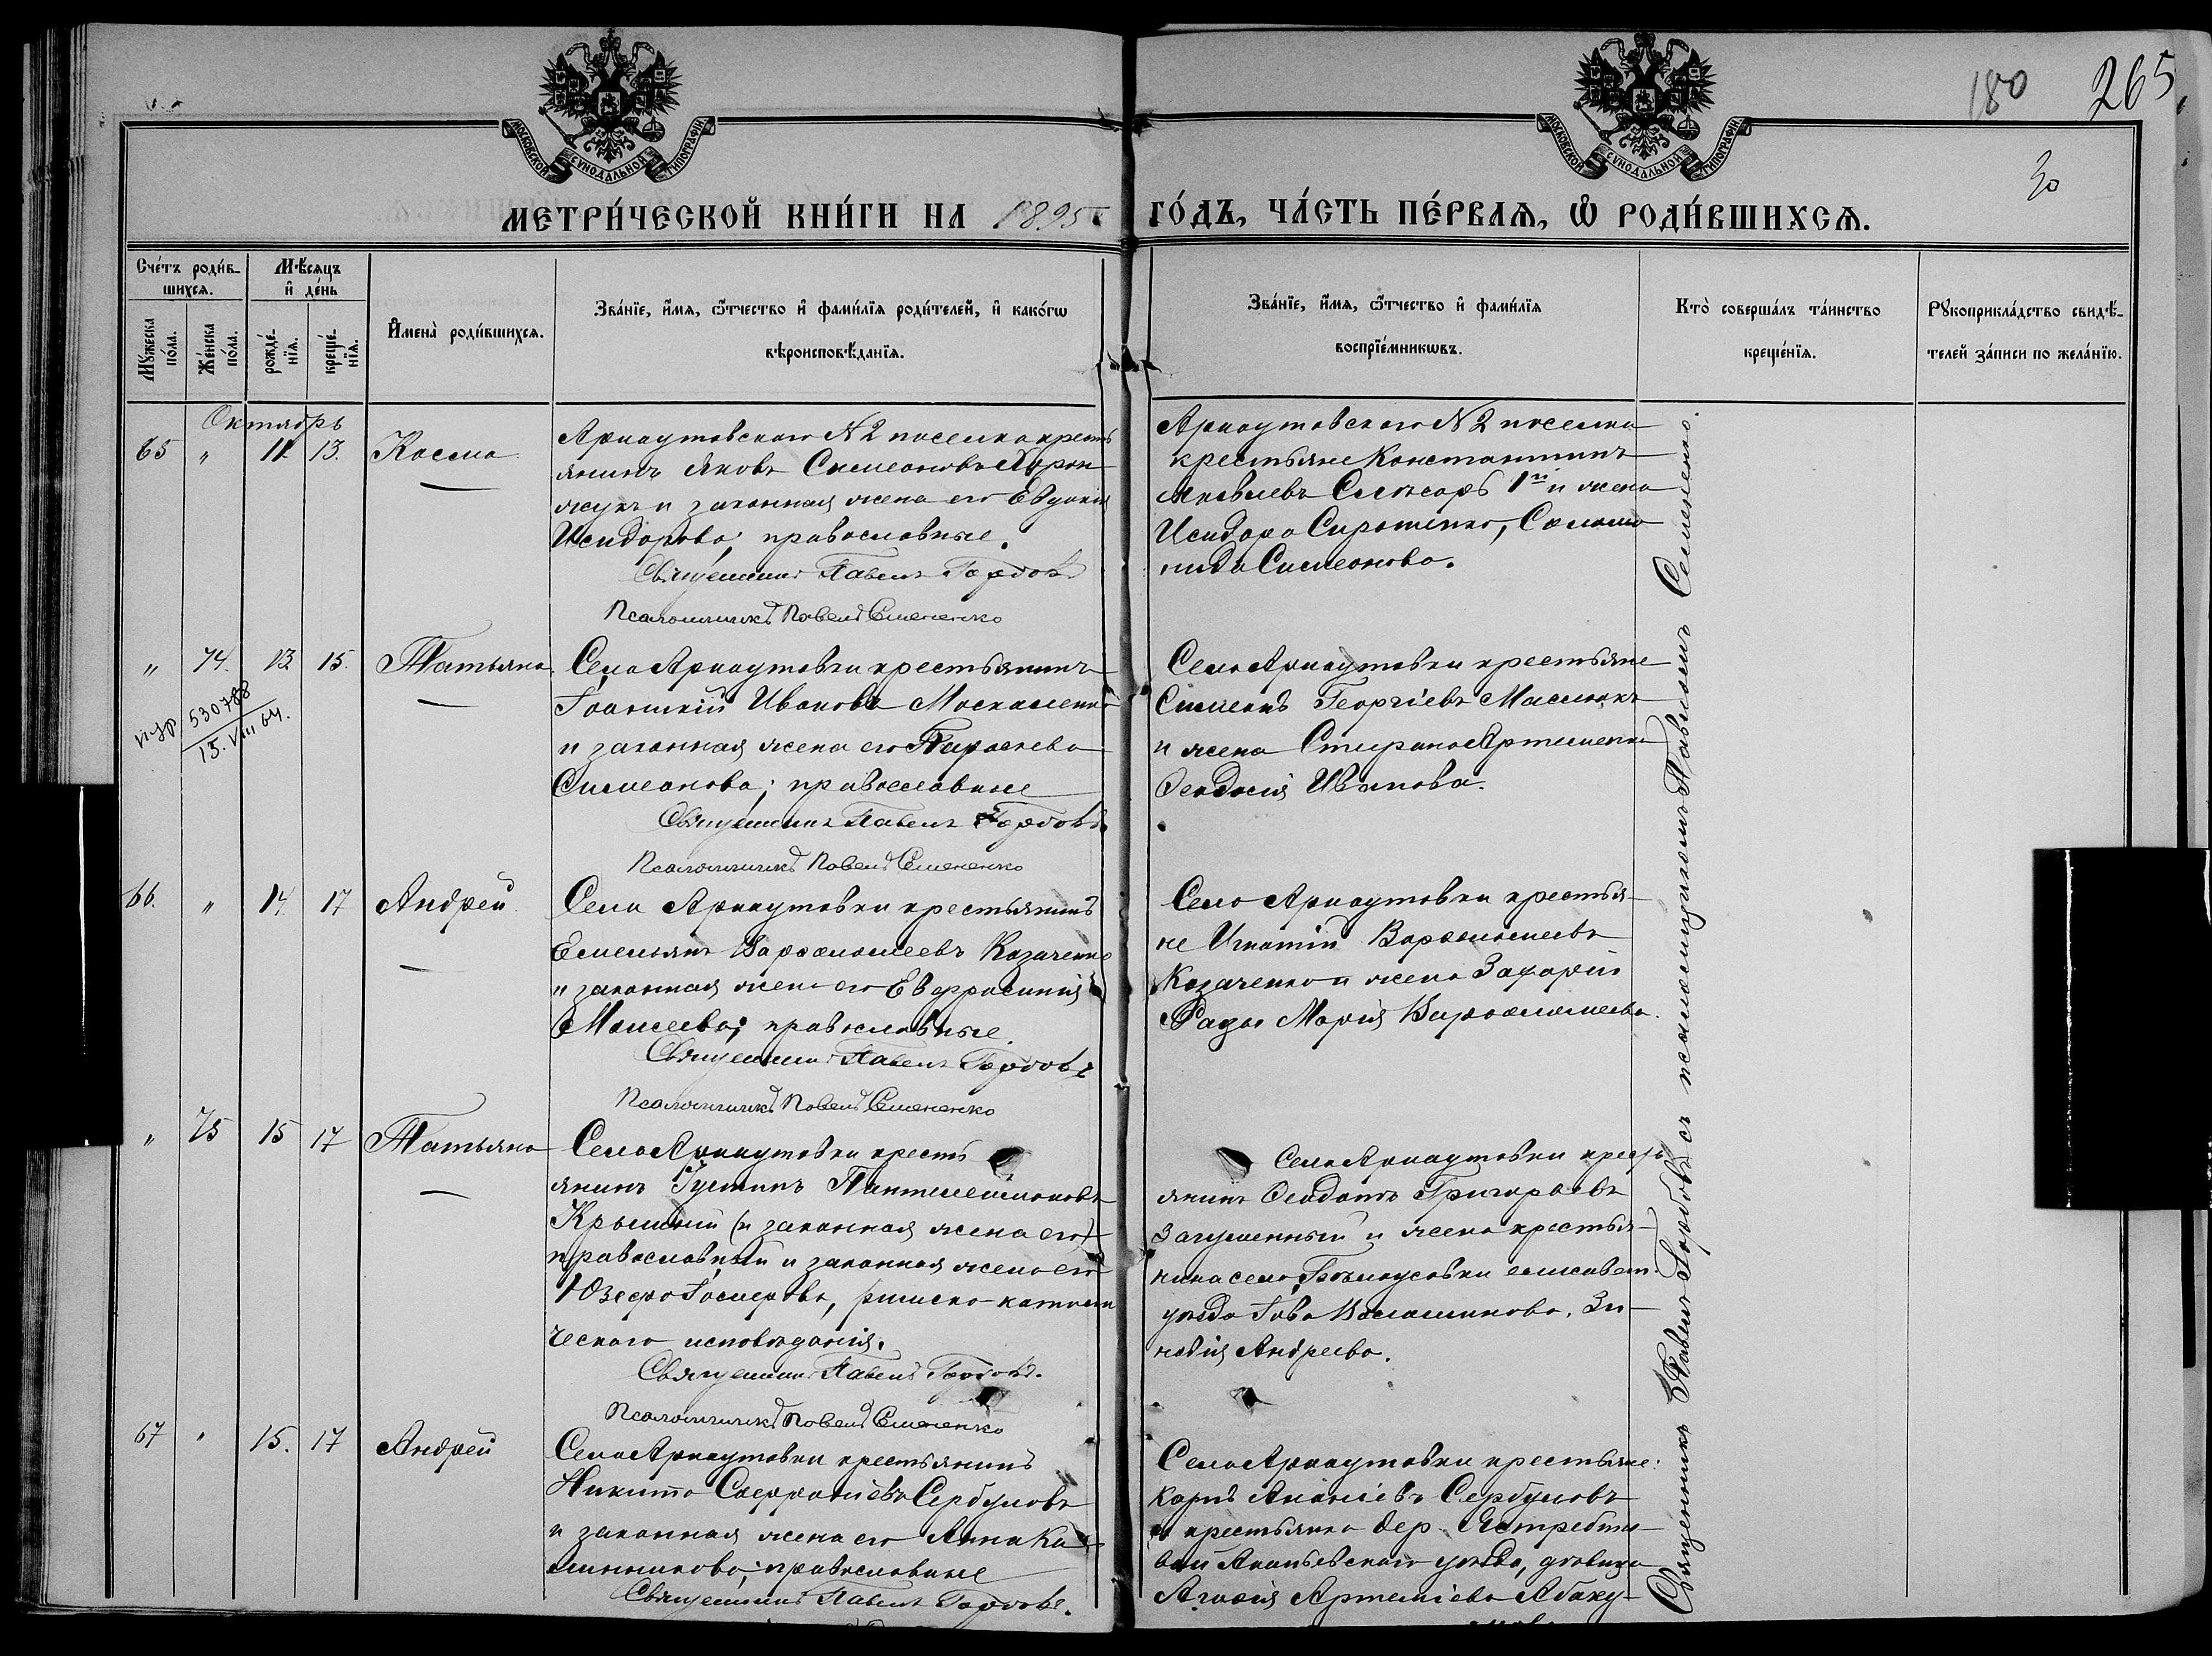 180 265
30
МОСКОВСКОЙ СѴНОДАЛЬНОЙ ТИПОГРАФІИ
МОСКОВСКОЙ СѴНОДАЛЬНОЙ ТИПОГРАФІИ
МЕТРИ́ЧЕСКОЙ КНИ́ГИ НА 1895 ГО́ДЪ, ЧА́СТЬ ПЕ́РВАѦ, Ѡ РОДИ́ВШИХСѦ.
Сче́тъ роди́в-
шихсѧ.
Мꙋ́жеска по́ла.
Же́нска по́ла.
Мѣ́сѧцъ и҆ де́нь
рожде́-нїѧ.
креще́-нїѧ.
И҆мена̀ роди́вшихсѧ.
Зва́нїе, и҆́мѧ, ѻ҆́тчество и҆ фами́лїѧ роди́телей, и҆ како́гѡ
вѣроисповѣ́данїѧ.
Зва́нїе, и҆́мѧ, ѻ҆́тчество и҆ фами́лїѧ
воспрїе́мникѡвъ.
Кто̀ соверша́лъ та́инство
креще́нїѧ.
Рꙋкоприкла́дство свидѣ́-
телей за́писи по жела́нїю.
Октябрь
65 " 11. 13. Косма
Арнаутовскаго N 2 поселка кресть
янинъ Яковъ Симеоновъ
и законная жена его Евдокия
Исидорова, православные.
Священникъ Павелъ Горбовъ
Псаломщикъ Павелъ Семененко
Арнаутовскаго N 2 поселка
крестьяне Константинъ
Яковлевъ Слюсарь 1й и жена
Исидора Сиротенко, Соломо
нида Симеонова.
" 74. 13. 15. Татьяна
530788
15.VIII 64.
Села Арнаутовки крестьянинъ
Іоанникій Ивановъ Москаленко
и законная жена его Параскева
Симеонова; православные
Священникъ Павелъ Горбовъ.
Псаломщикъ Павелъ Семененко
Села Арнаутовки крестьяне
Симеонъ Георгіевъ Маслюкъ
и жена Стефана Артеменко
Феодосія Иванова.
66. " 14. 17 Андрей
Села Арнаутовки крестьянинъ
Емельянъ Варфоломеевъ Казаченко
и законная жена его Евфросинія
Моисеева; православные.
Священникъ Павелъ Горбовъ
Псаломщикъ Павелъ Семененко
Села Арнаутовки крестья-
не Игнатій Варфоломеевъ
Казаченко и жена Захарія
Марія Варфоломеева.
" 75 15 17 Татьяна
Села Арнаутовки кресть
янинъ Густинъ Пантелеимоновъ
(и законная жена его)
православный и законная жена его
Юзефа римско-католи
ческаго исповѣданія.
Священникъ Павелъ Горбовъ.
Псаломщикъ Павелъ Семененко
Села Арнаутовки кресть
янинъ Феодотъ Григорьевъ
и жена крестья-
нина села елисавет.
уѣзда Іова Зи-
новія Андреева.
67 " 15. 17 Андрей
Села Арнаутовки крестьянинъ
Никита Софроніевъ Сербуловъ
и законная жена его Анна Ка-
линникова; православные
Священникъ Павелъ Горбовъ.
Села Арнаутовки крестьяне:
Карпъ Ананіевъ Сербуловъ
и крестьянка дер. Ястребино-
вой Ананьевскаго уѣзда, дѣвица
Агафія Артеміева Абаку-
Священникъ Павелъ Горбовъ съ псаломщикомъ Павломъ Семененко.